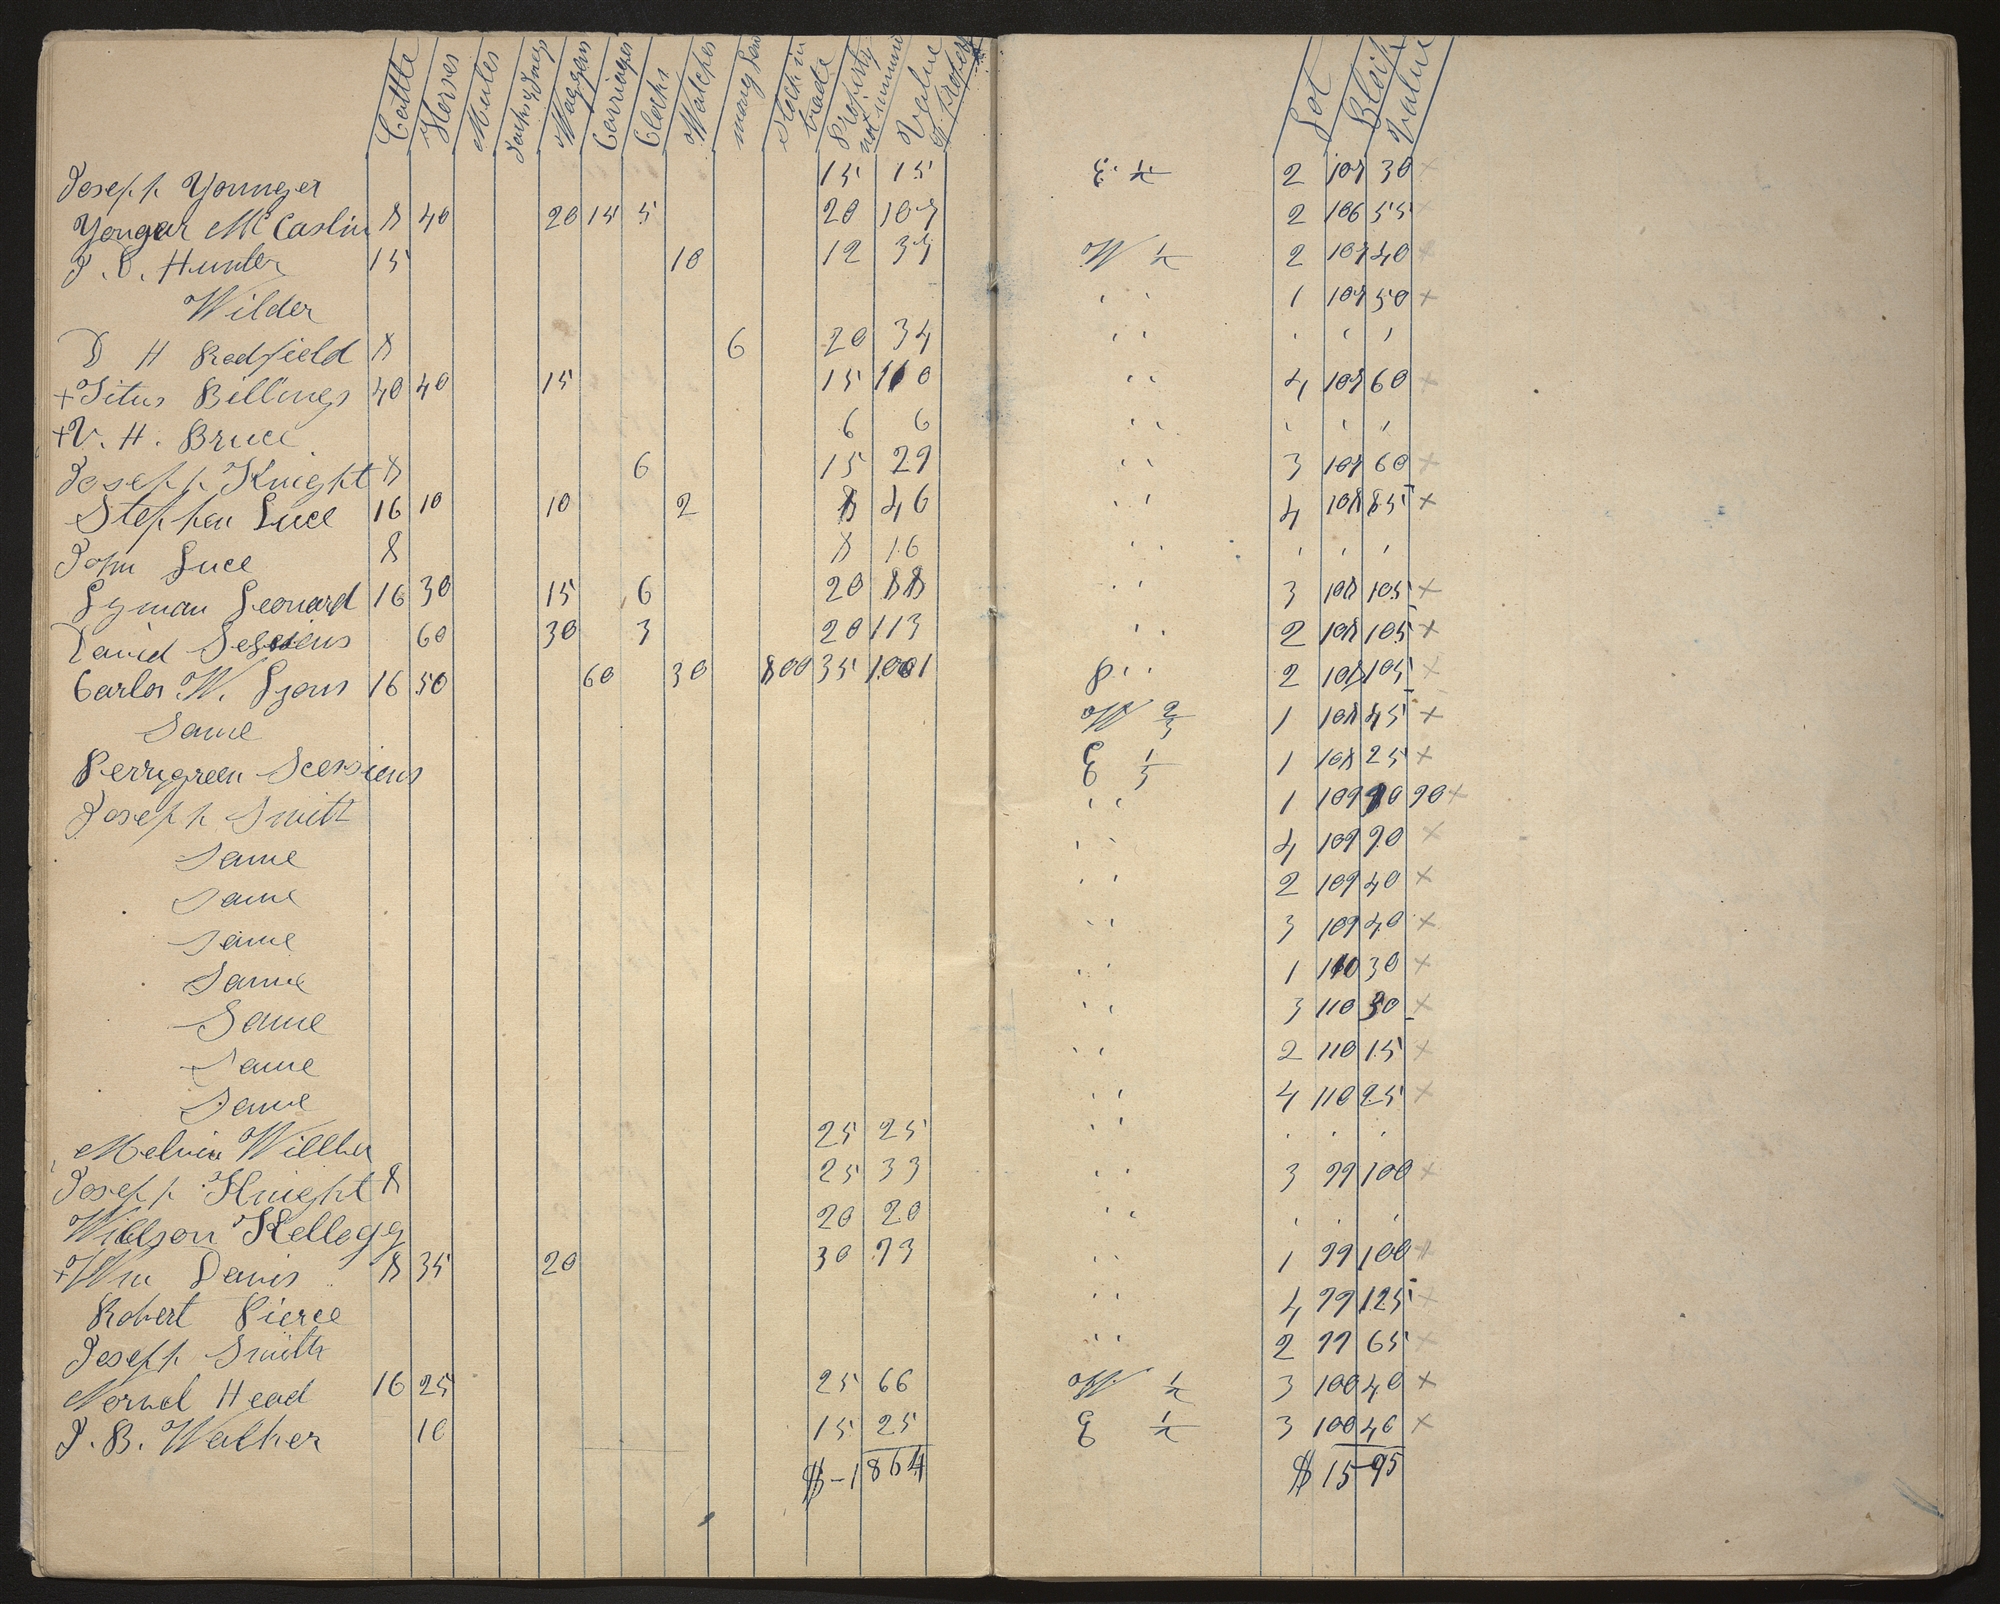 Cattle Horses Mules Jacks & Jines Waggons Carriages Clocks Watches mony Stock in trade Property not enumi Value of Property Lot Block Value
Joseph Younger 15 15 E ½ 2 107 30 ×
Yongar McCaslin 8 40 20 15 5 20 107 2 106 55 ×
J. C. Hunter 15 10 12 37 W ½ 2 107 40 ×
Wilder ' ' 1 107 50 ×
D H Redfield 8 6 20 34 ' ' ' ' '
+ Titus Billings 40 40 15 15 110 ' ' 4 107 60 ×
+ V. H. Bruce 6 6 ' ' ' ' '
Joseph Knight 8 6 15 29 ' ' 3 107 60 ×
Stephen Luce 16 10 10 2 8 46 ' ' 4 108 85 ×
John Luce 8 8 16 ' ' ' ' '
Lyman Leonard 16 30 15 6 20 88 ' ' 3 108 105 ×
David Sessions 60 30 3 20 113 ' ' 2 108 105 ×
Carlos W. Lyons 16 50 60 30 800 35 1001 P ' ' 2 108 105 ×
Same W ⅔ 1 108 45 ×
Perrygreen Scessions E ⅓ 1 108 25 ×
Joseph Smith ' ' 1 109 90 90 ×
Same ' ' 4 109 90 ×
Same ' ' 2 109 40 ×
Same ' ' 3 109 40 ×
Same ' ' 1 110 30 ×
Same ' ' 3 110 30 ×
Same ' ' 2 110 15 ×
Same ' ' 4 110 25 ×
Melvin Willbur 25 25 ' ' ' ' '
Joseph Knight 8 25 33 ' ' 3 99 100 ×
Willson Kellogg 20 20 ' ' ' ' '
+ Wm Davis 8 35 20 30 93 ' ' 1 99 100 ×
Robert Pierce ' ' 4 99 125 ×
Joseph Smith ' ' 2 99 65 ×
Norwel Head 16 25 25 66 W ½ 3 100 40 ×
J. B. Walker 10 15 25 E ½ 3 100 40 ×
$-1864 $1595